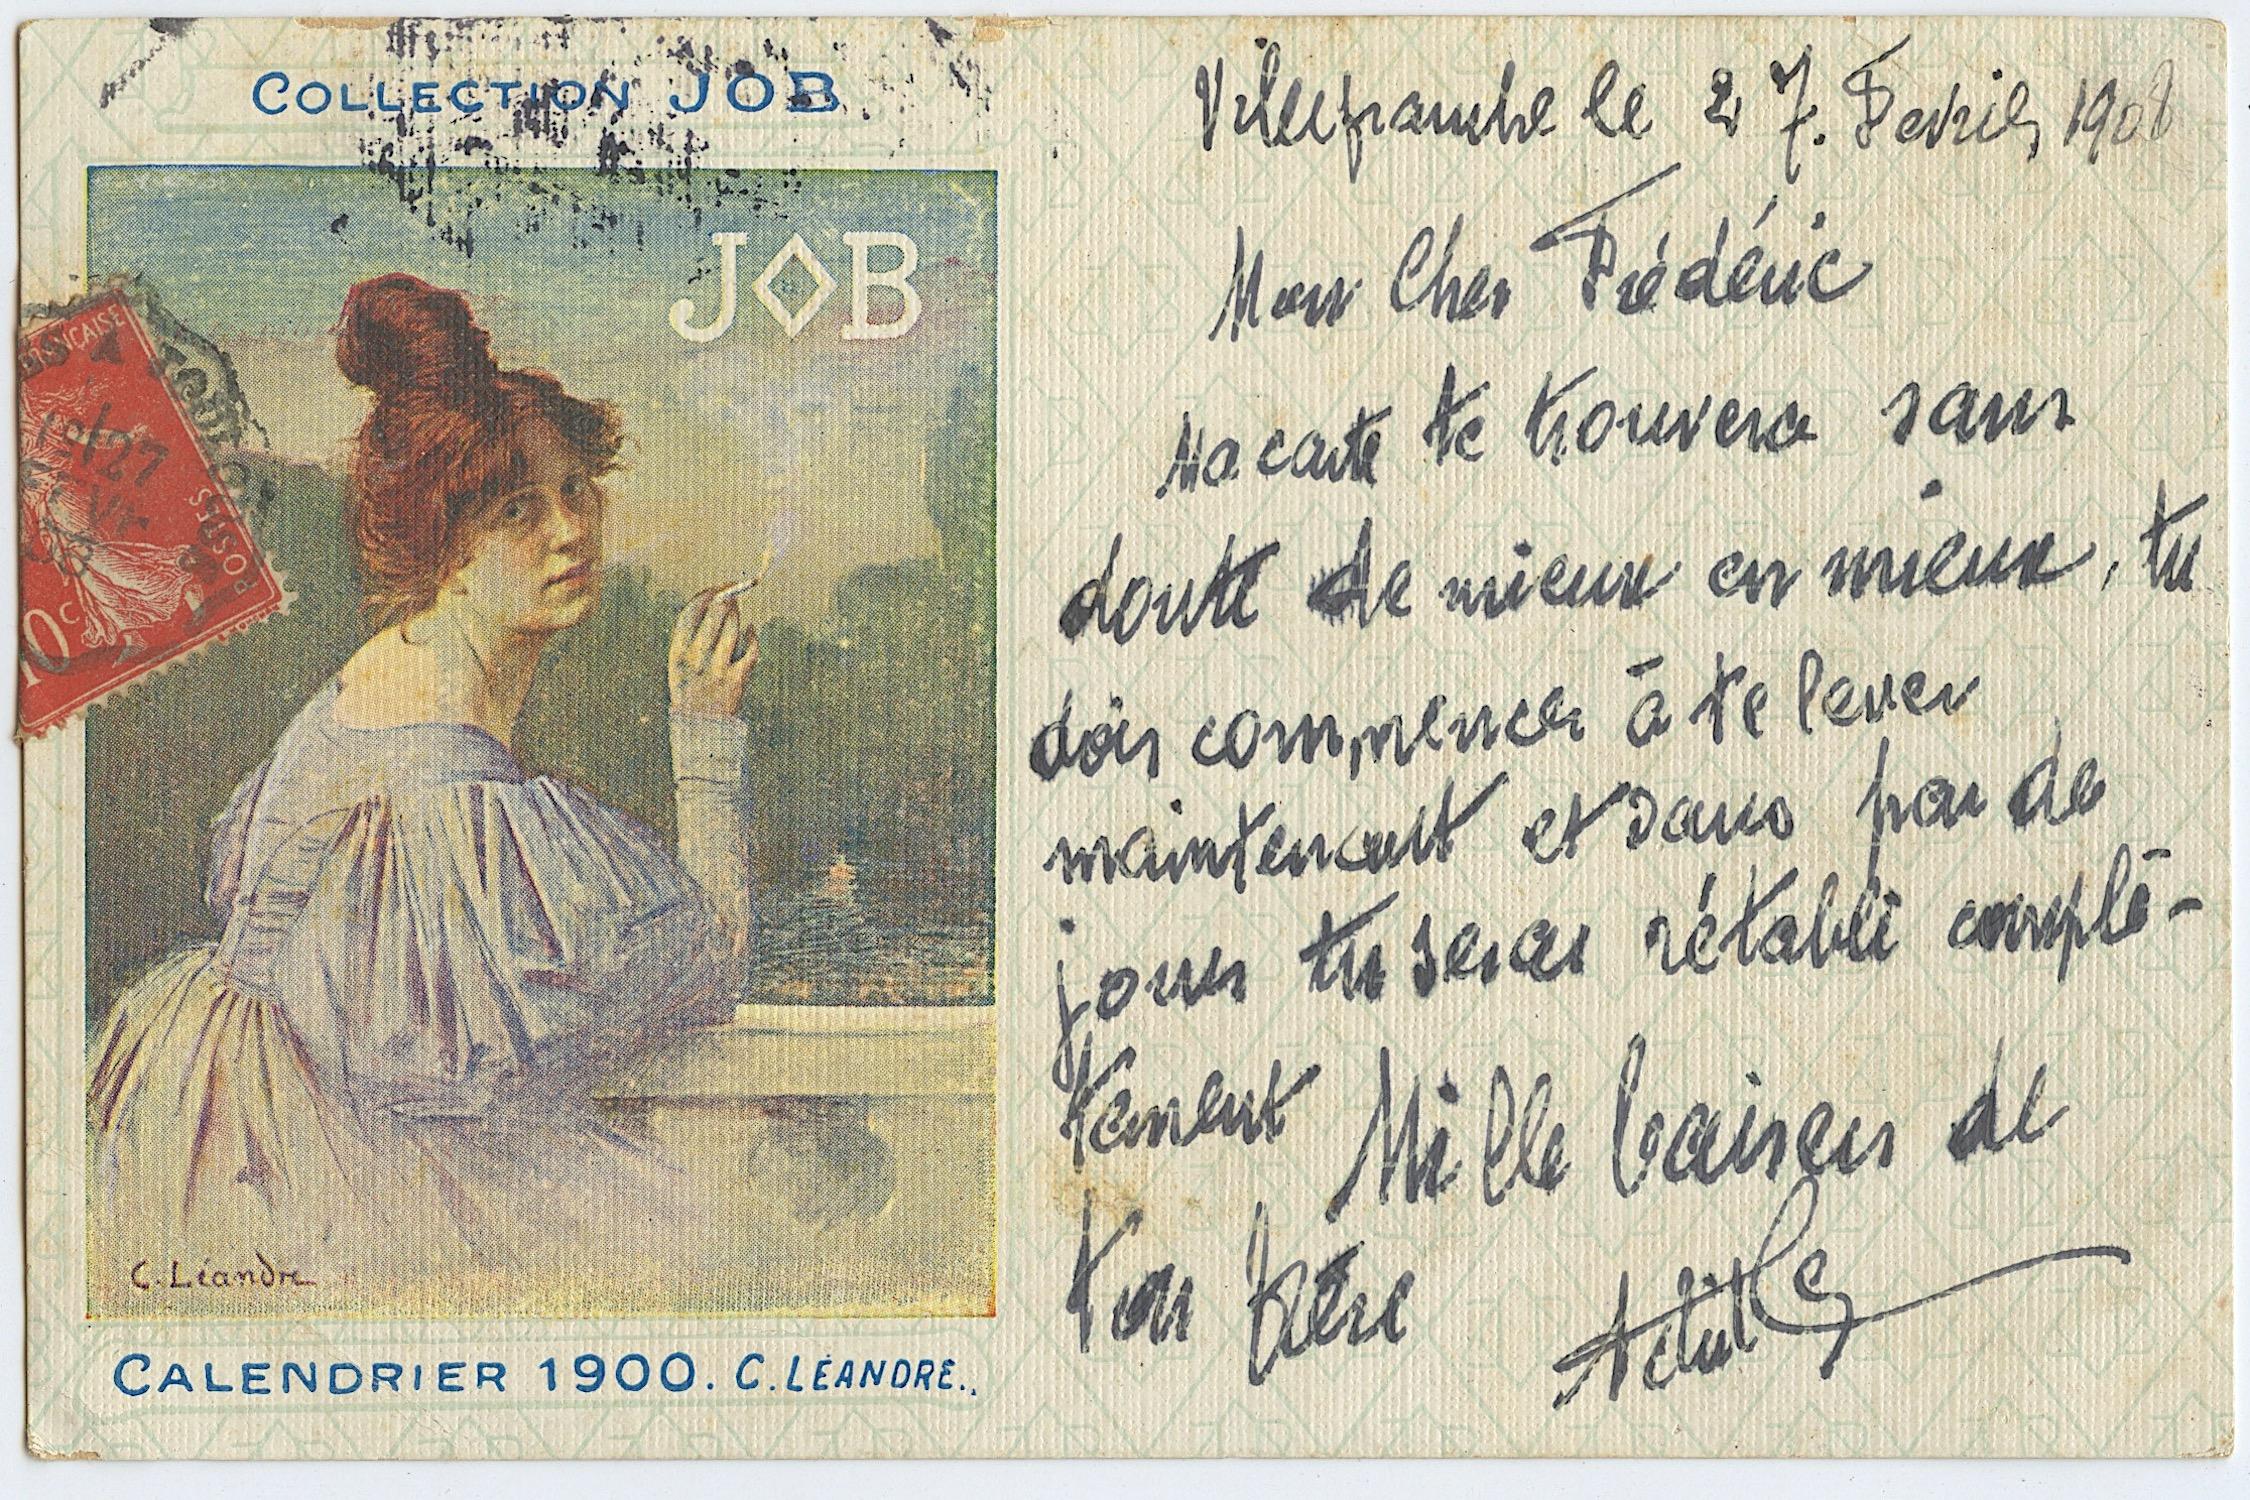 COLLECTION JOB
JOB
FRANÇAISE
POSTES
10c
12/27
C. Léandre
CALENDRIER 1900. C. LÉANDRE.
Villefranche le 27. Fevrier 1908
Mon Cher Frédéric
Ma carte te trouvera sans
doute de mieux en mieux, tu
dois commencer à te lever
maintenant et sans peu de
jours tu seras rétabli complè-
tement Mille baisers de
ton frère